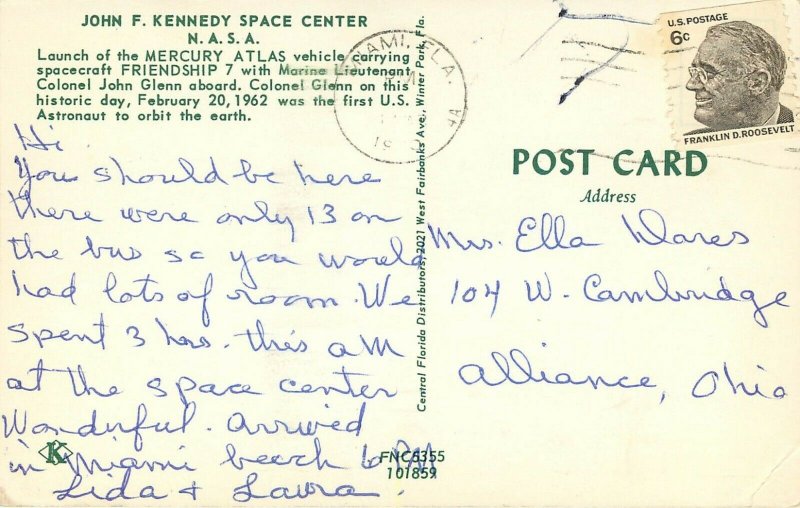 JOHN F. KENNEDY SPACE CENTER
N. A. S. A.
Launch of the MERCURY ATLAS vehicle carrying
spacecraft FRIENDSHIP 7 with Marine Lieutenant
Colonel John Glenn aboard. Colonel Glenn on this
historic day, February 20, 1962 was the first U.S.
Astronaut to orbit the earth.
Hi
You should be here
there were only 13 on
the bus so you would
had lots of room. We
spent 3 hrs. this AM
at the space center
Wonderful. Arrived
in Miami beach 6 PM
Lida + Laura.
K
FNC5355
101859
Central Florida Distributors, 2021 West Fairbanks Ave., Winter Park, Fla.
MIAMI, FLA.
U.S. POSTAGE
6c
FRANKLIN D. ROOSEVELT
POST CARD
Address
Mrs. Ella Dares
104 W. Cambridge
Alliance, Ohio